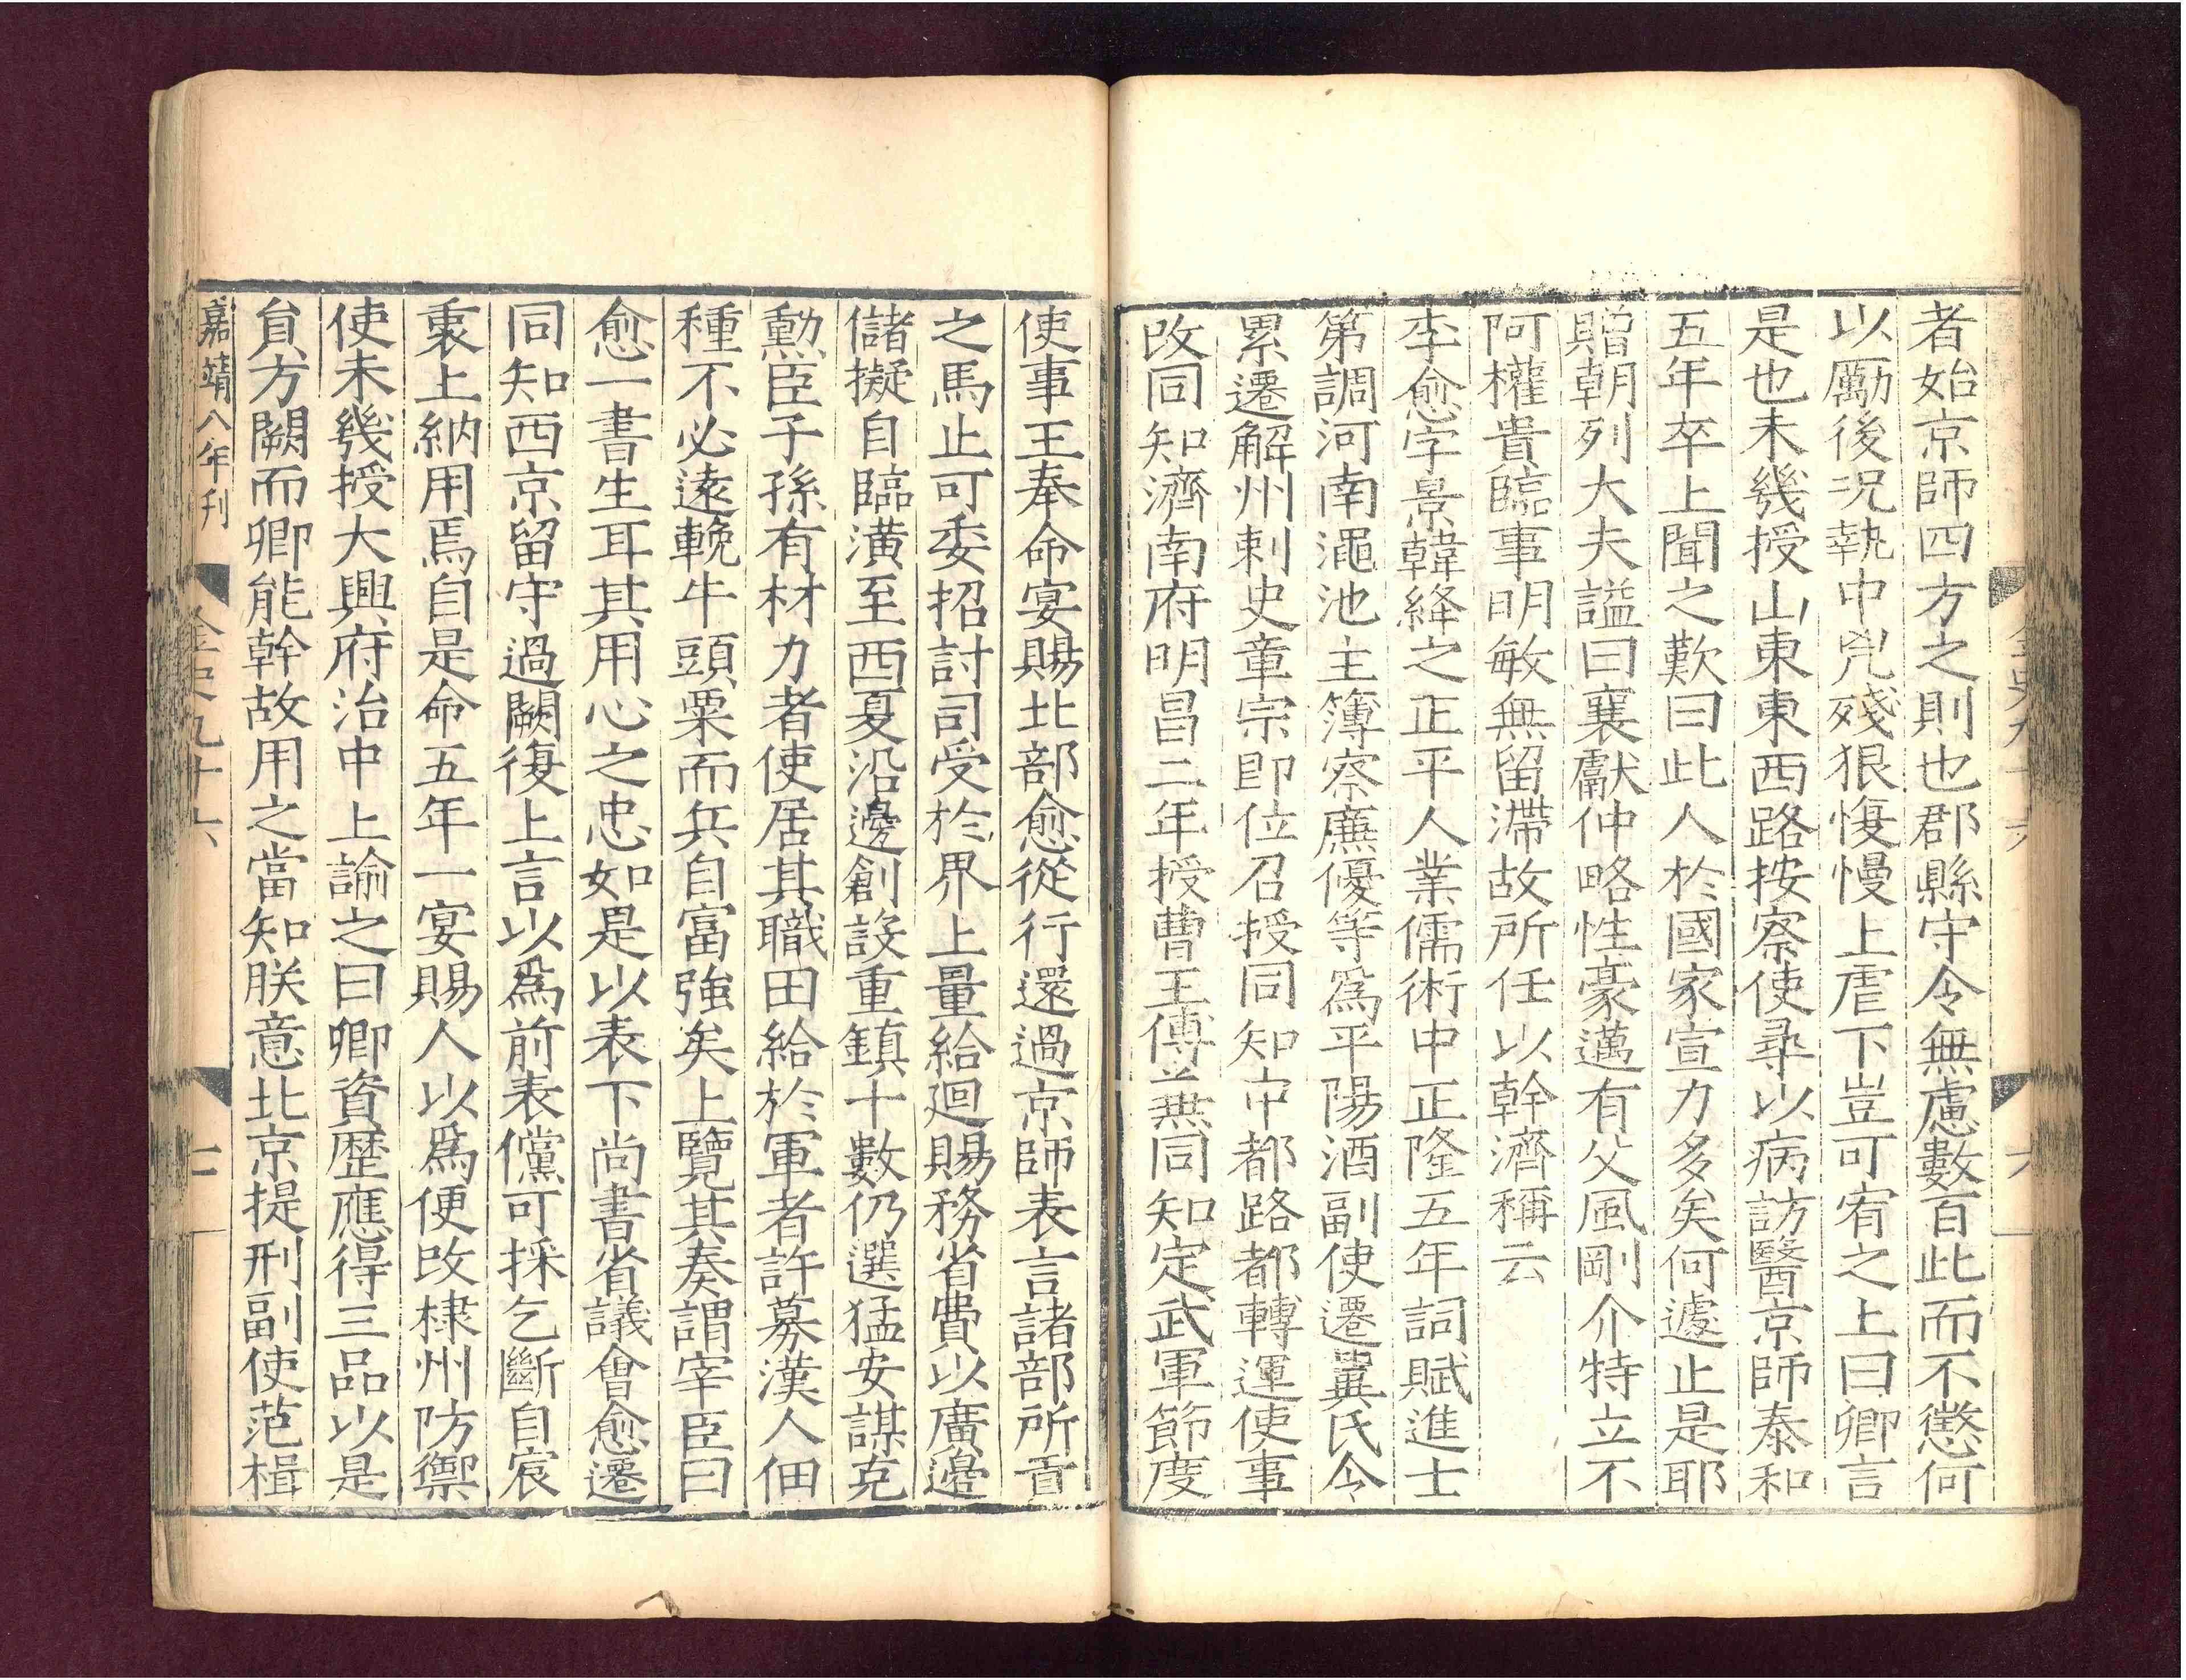 者始京師四方之則也郡縣守令無慮數百此而不懲何
以勵後况執中兇殘狠愎慢上虐下豈可宥之上曰卿言
是也未幾授山東東西路按察使尋以病訪醫京師泰和
五年卒上聞之歎曰此人於國家宣力多矣何遽止是耶
贈朝列大夫謚曰襄獻仲略性豪邁有父風剛介特立不
阿權貴臨事明敏無留滯故所任以幹濟稱云
李愈字景韓絳之正平人業儒術中正隆五年詞賦進士
第調河南澠池主簿察廉優等爲平陽酒副使遷冀氏令
累遷解州刺史章宗即位召授同知中都路都轉運使事
改同知濟南府明昌二年授曹王傅兼同知定武軍節度
使事王奉命宴賜北部愈從行還過京師表言諸部所貢
之馬止可委招討司受於界上量給廻賜務省費以廣邊
儲擬自臨潢至西夏沿邊創設重鎮十數仍選猛安謀克
勳臣子孫有材力者使居其職田給於軍者許募漢人佃
種不必遠輓牛頭粟而兵自富強矣上覽其奏謂宰臣曰
愈一書生耳其用心之忠如是以表下尚書省議會愈遷
同知西京留守過闕復上言以爲前表儻可採乞斷自宸
衷上納用焉自是命五年一宴賜人以爲便改棣州防禦
使未幾授大興府治中上諭之曰卿資歷應得三品以是
員方闕而卿能幹故用之當知朕意北京提刑副使范楫
嘉靖八年刊
金史九十六